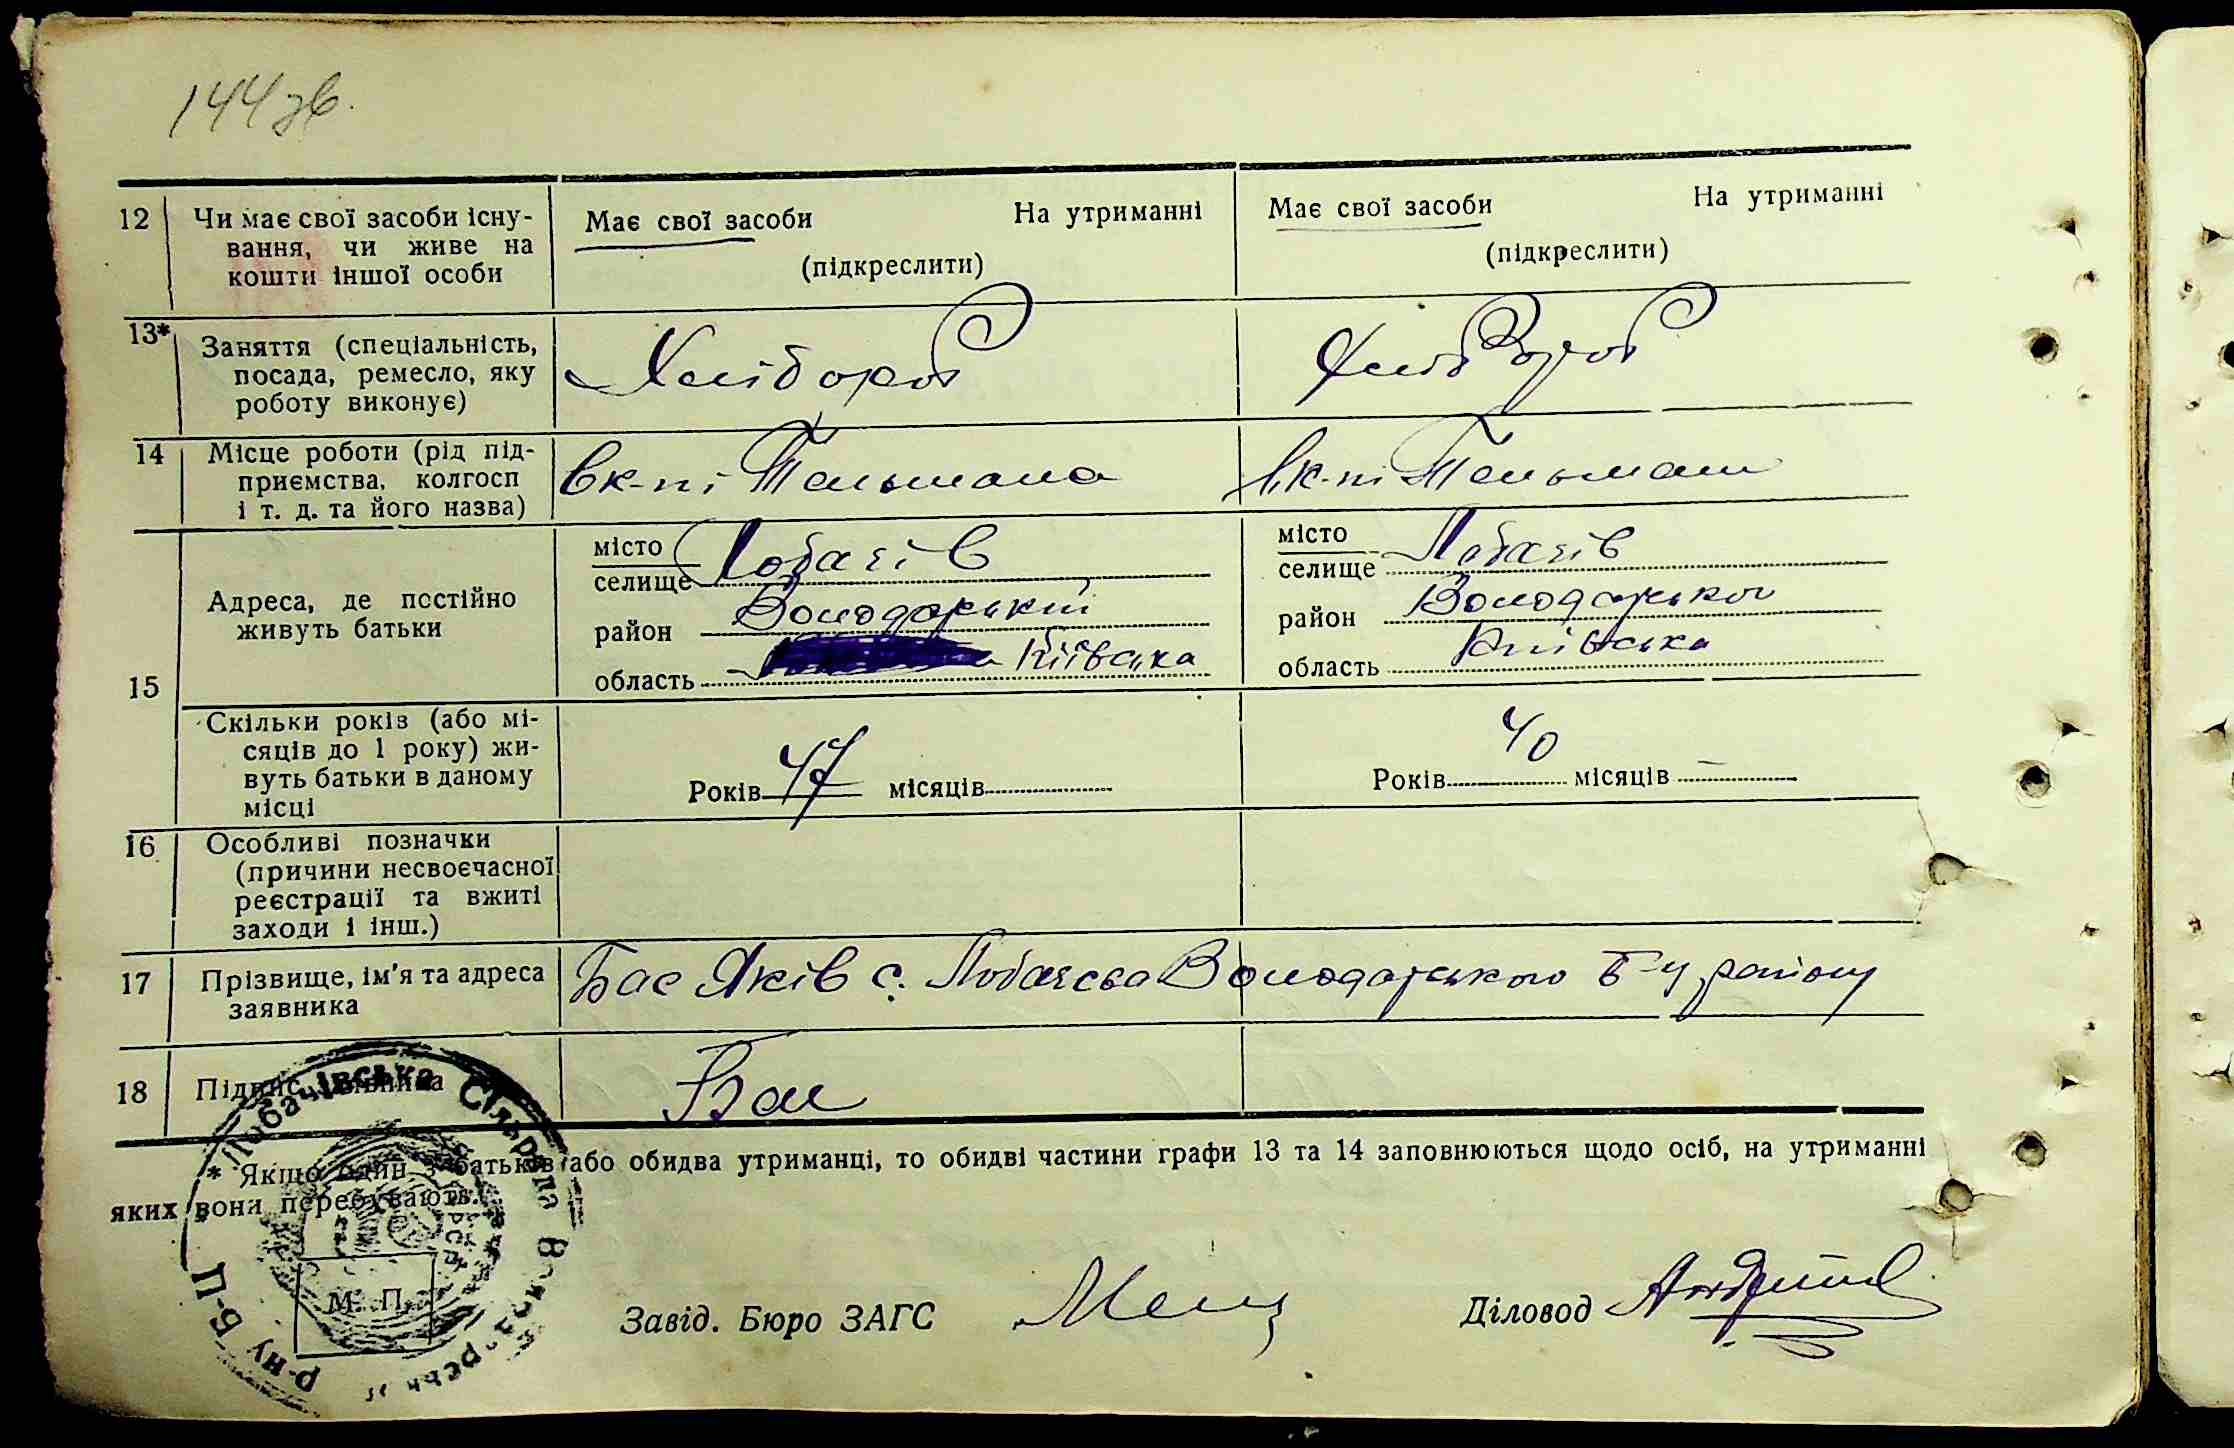 144 зв.
12 Чи має свої засоби існу- Має свої засоби На утриманні Має свої засоби На утриманні
вання, чи живе на (підкреслити) (підкреслити)
кошти іншої особи
13* Заняття (спеціальність, Хлібороб Хлібороб
посада, ремесло, яку
роботу виконує)
14 Місце роботи (рід під- в к-пі Тельмана в к-пі Тельмана
приємства, колгосп
і т. д. та його назва)
15 Адреса, де постійно
живуть батьки
місто Лобачів місто Лобачів
селище селище
район Володарський район Володарського
область Київська область Київська
Скільки років (або мі-
сяців до 1 року) жи-
вуть батьки в даному
місці
Років 47 місяців Років 40 місяців
16 Особливі позначки
(причини несвоєчасної
реєстрації та вжиті
заходи і інш.)
17 Прізвище, ім'я та адреса Бас Яків с. Лобачева Володарського району
заявника
18 Підпис заявника Бас
* Якщо один з батьків або обидва утриманці, то обидві частини графи 13 та 14 заповнюються щодо осіб, на утриманні
яких вони перебувають.
Лобачівська Сільрада Володарськ р-ну Б-Ц
М. П.
Завід. Бюро ЗАГС Діловод